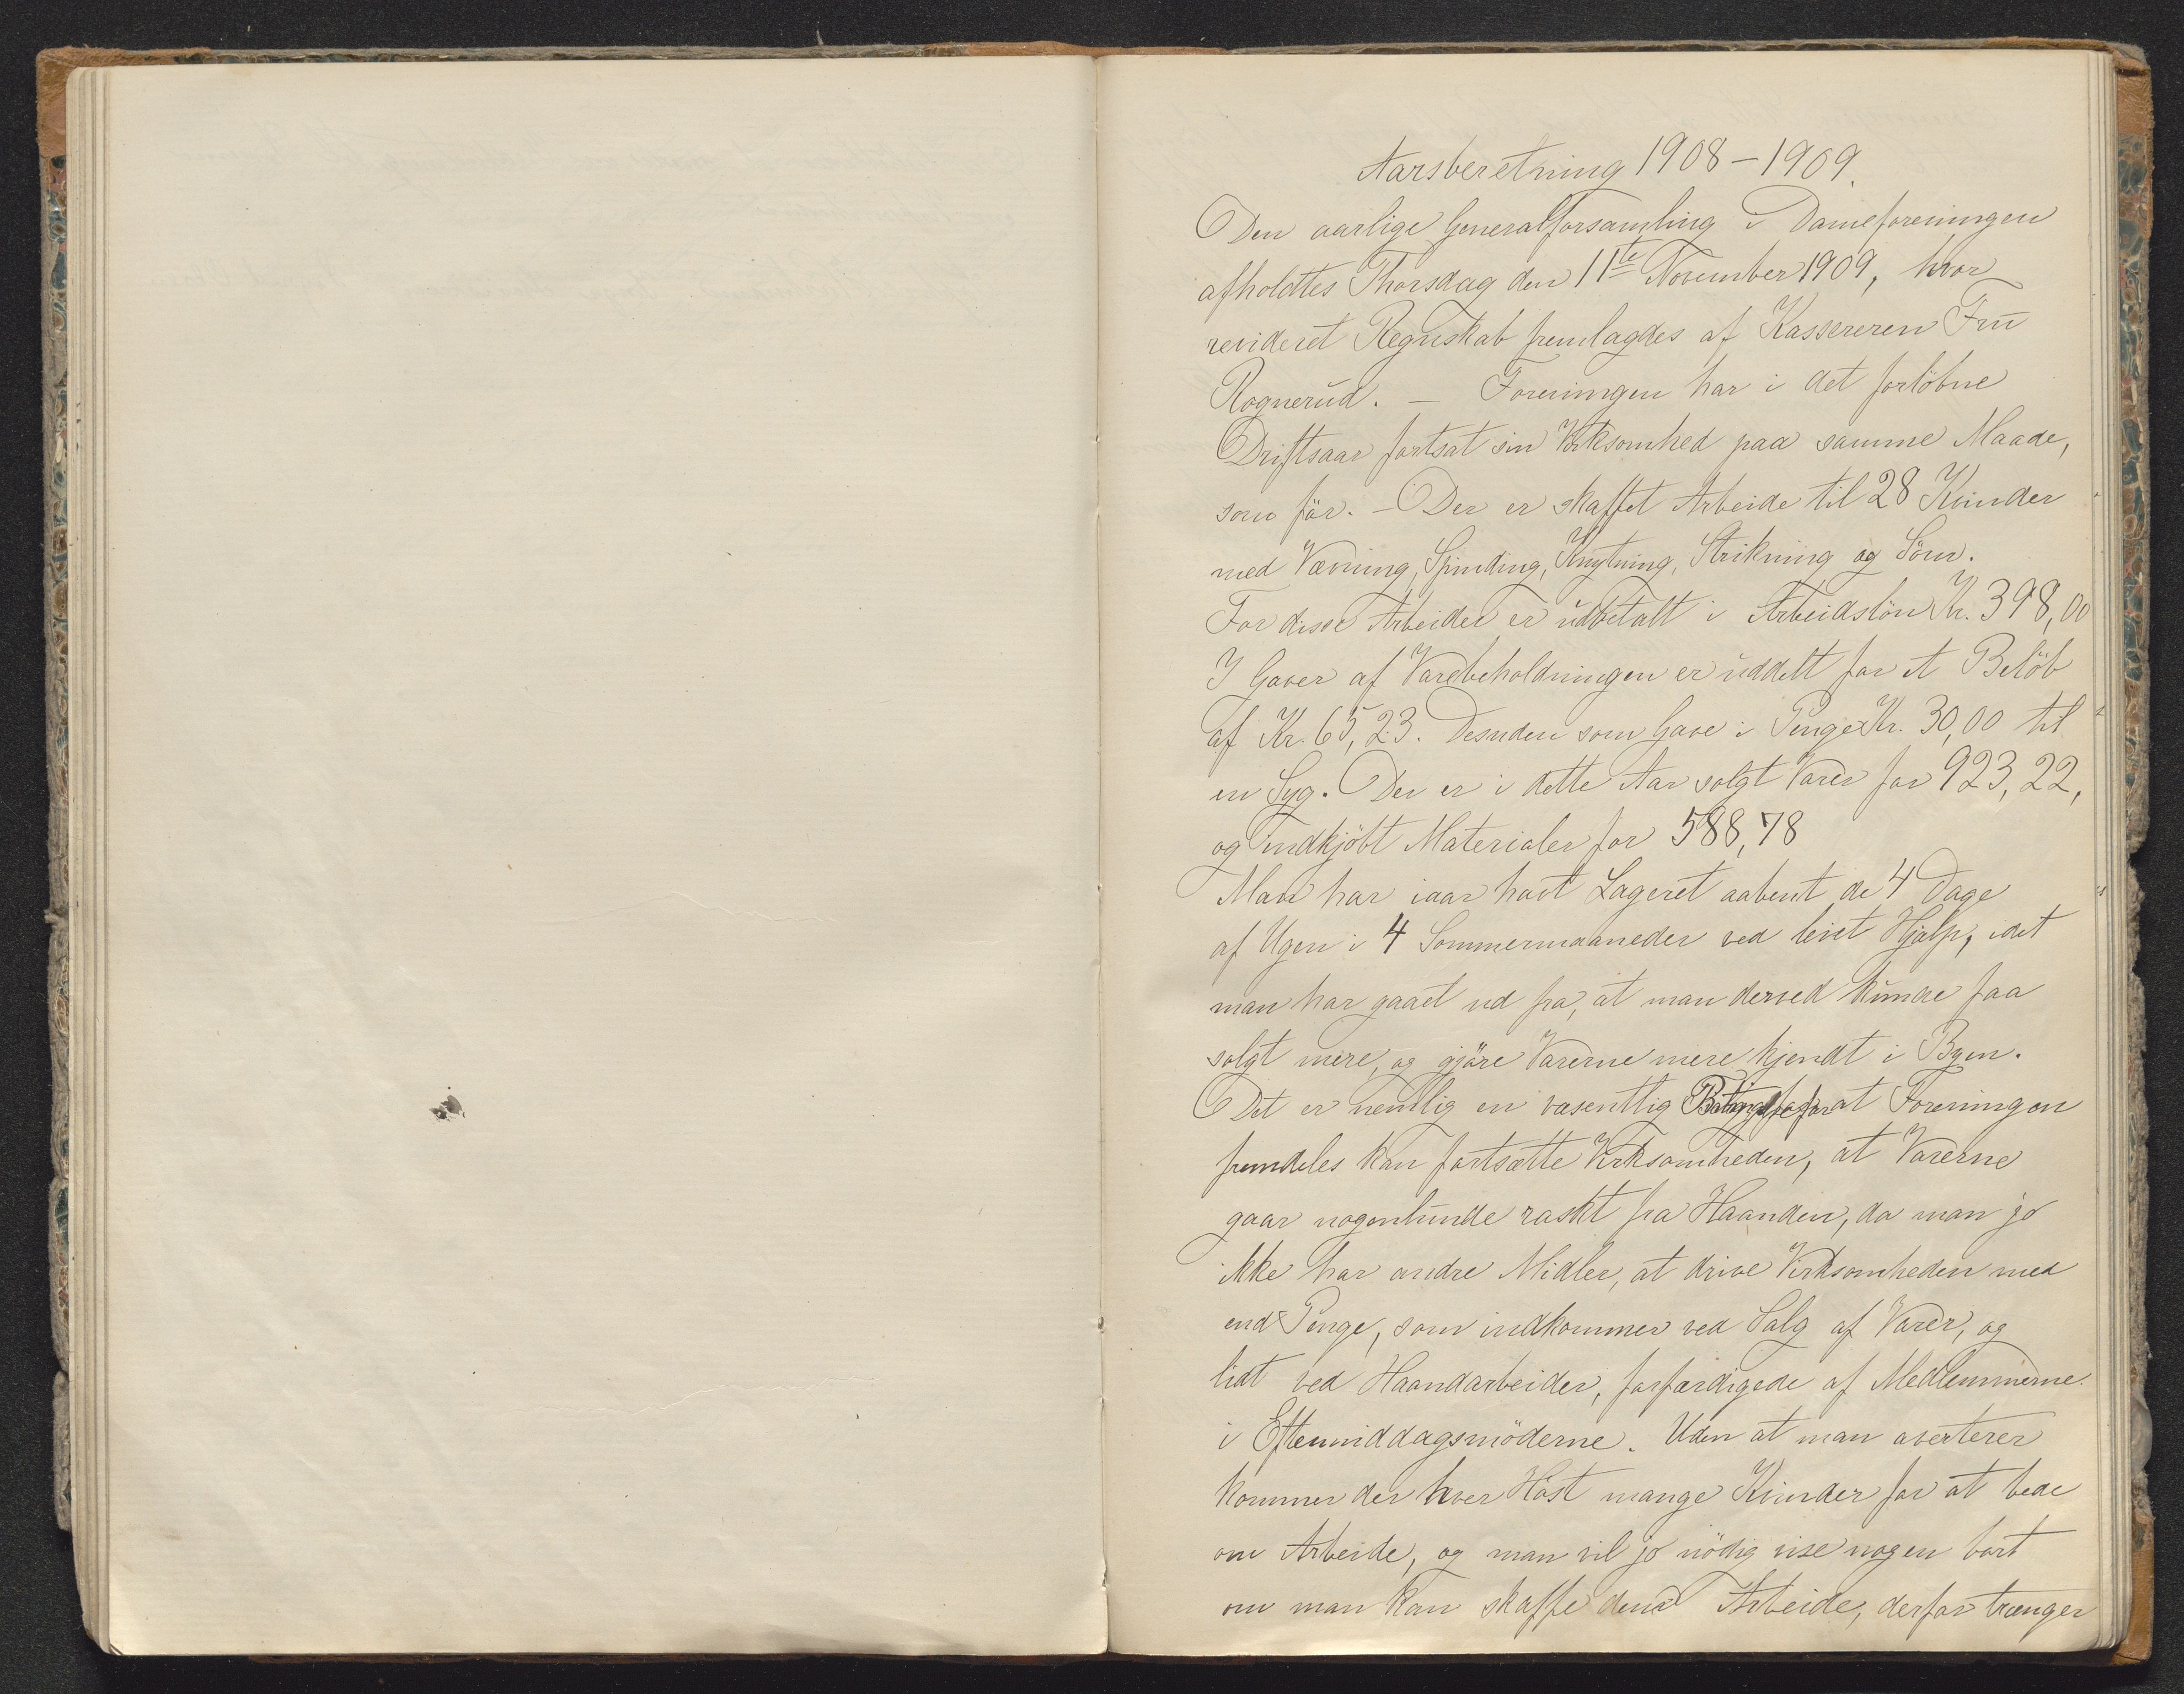 Aarsberetning 1908-1909.
Den aarlige Generalforsamling i Dameforeningen
afholdtes Thorsdag den 11te November 1909, hvor
revideret Regnskab fremlagdes af Kassereren Fru
Rognerud. - Foreningen har i det forløbne
Driftsaar fortsat sin Virksomhed paa samme Maade,
som før. - Der er skaffet Arbeide til 28 Kvinder
med Vævning, Spinding, Knytning, Strikning og Söm.
For disse Arbeider er udbetalt i Arbeidslön Kr. 398,00
I Gaver af Varebeholdningen er uddelt for et Belöb
af Kr. 65,23. Desuden som Gave i Penge Kr. 30,00 til
en Syg. Der er i dette Aar solgt Varer for 923,22,
og indkjöbt Materialer for 588,78
Man har iaar havt Lageret aabent de 4 Dage
af Ugen i 4 Sommermaaneder ved leiet Hjælp, idet
man har gaaet ud fra, at man derved kunde faa
solgt mere, og gjöre Varerne mere kjendt i Byen.
Det er nemlig en væsentlig for at Foreningen
fremdeles kan fortsætte Virksomheden, at Varerne
gaar nogenlunde raskt fra Haanden, da man jo
ikke har andre Midler, at drive Virksomheden med
end Penge, som indkommer ved Salg af Varer, og
lidt ved Haandarbeider, forfærdigede af Medlemmerne
i Eftermiddagsmöderne. Uden at man averterer
kommer der hver Höst mange Kvinder for at bede
om Arbeide, og man vil jo nödig vise nogen bort
om man kan skaffe dem Arbeide, derfor trænger